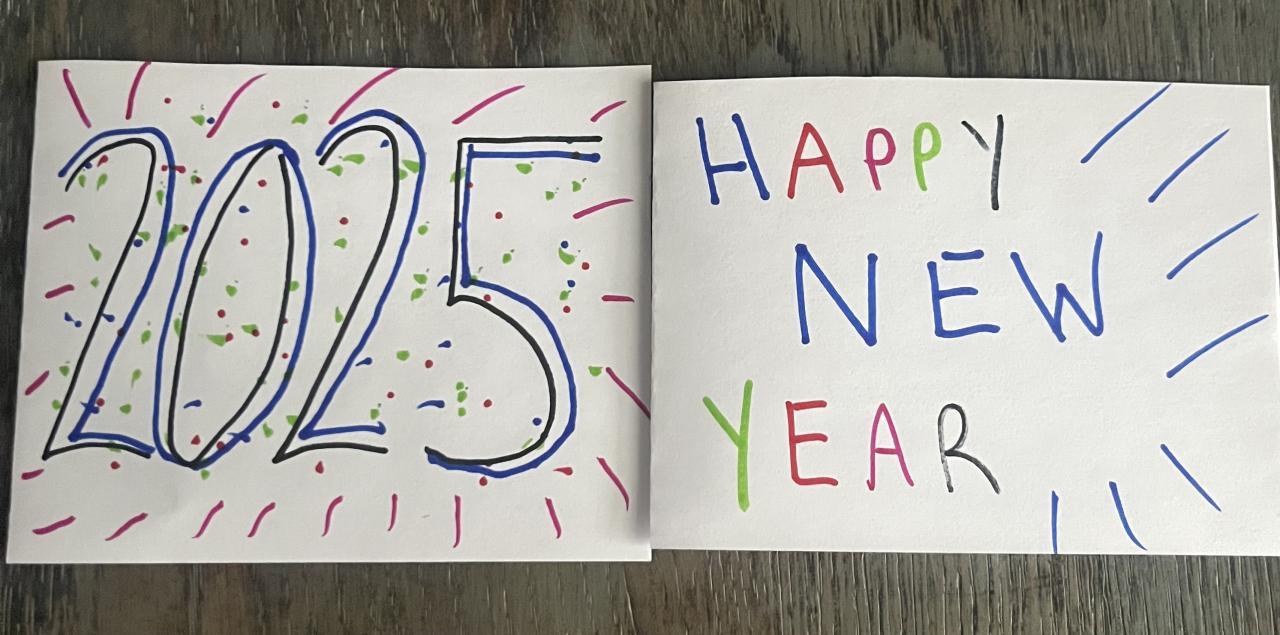 2025
HAPPY
NEW
YEAR